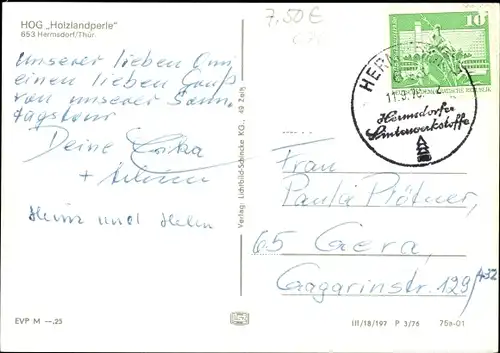 HOG „Holzlandperle"
653 Hermsdorf/Thür.
7,50 €
Unserer lieben Omi
einen lieben Gruß
von unserer Sonn-
tagstour
Deine Erika
+
Heinz und Helen
EVP M —.25
Verlag: Lichtbild-Schincke KG., 49 Zeitz
10
11.9.76
Hermsdorfer
Sinterwerkstoffe
Frau
Paula Plötner,
65 Gera,
Gagarinstr. 129/432
III/18/197 P 3/76 75a-01